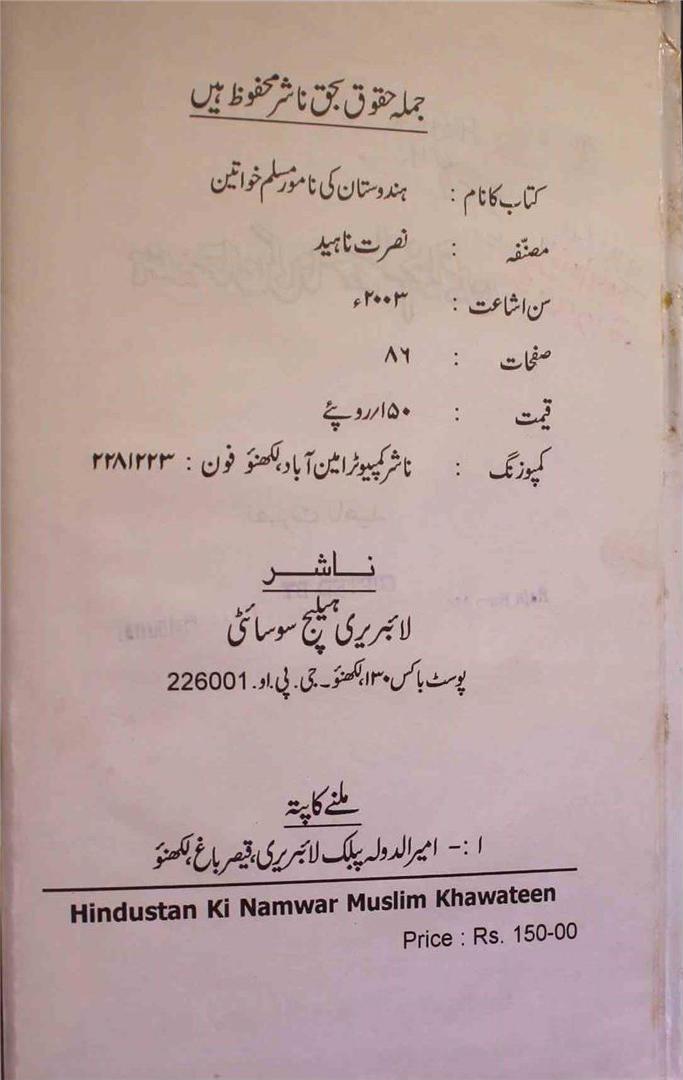 جملہ حقوق بحق ناشر محفوظ ہیں
کتاب کا نام : ہندوستان کی نامور مسلم خواتین
مصنّفہ : نصرت ناہید
سن اشاعت : ۲۰۰۳ء
صفحات : ۸۶
قیمت : ۱۵۰/روپئے
کمپوزنگ : ناشر کمپیوٹر امین آباد، لکھنؤ فون : ۲۲۸۱۲۲۳
ناشر
لائبریری ہیلپج سوسائٹی
پوسٹ باکس ۱۳۰، لکھنؤ۔ جی. پی. او. 226001
ملنے کا پتہ
۱ :- امیر الدولہ پبلک لائبریری، قیصر باغ، لکھنؤ
Hindustan Ki Namwar Muslim Khawateen
Price : Rs. 150-00